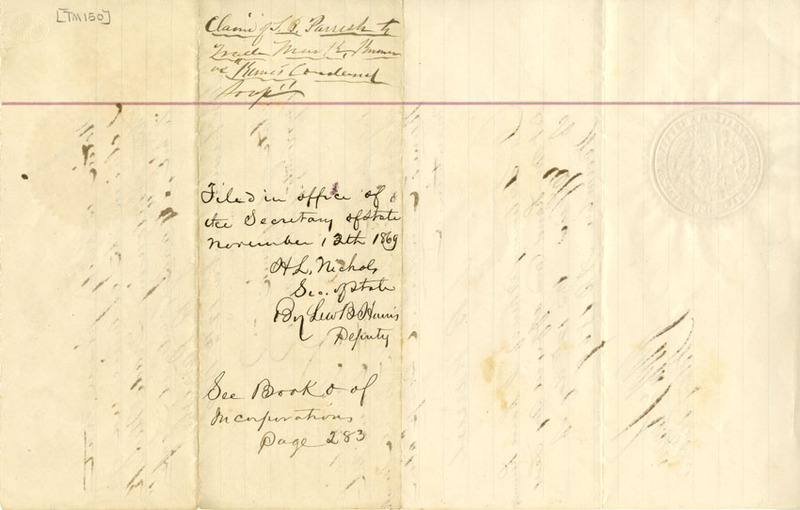 [TM150]
Claim of S. B. Parrish to
Trade Mark, known
as "Kerne's Condensed
Soap"
Filed in office of
the Secretary of State
November 12th 1869
H. L. Nichols
Sec. of State
By Lew B Harris
Deputy
See Book of
Incorporations
Page 283